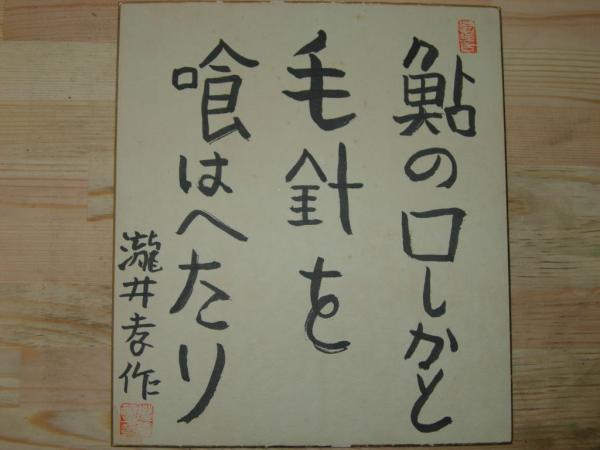 鮎の口しかと
毛針を
喰はへたり
瀧井孝作